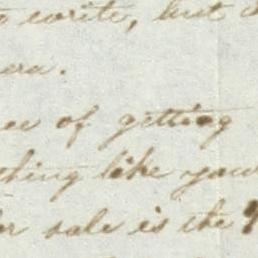 write, but
of getting
thing like your
sale is the